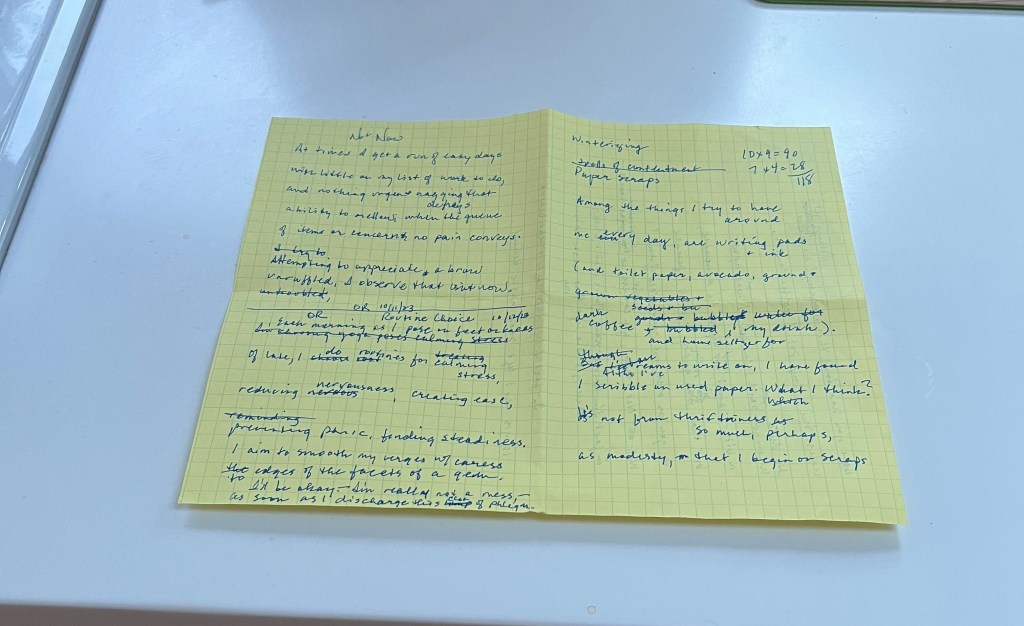 Not Now
At times I get a run of easy days
with little on my list of work to do,
and nothing urgent nagging that
defrays
ability to mellow, when the queue
of items or concerns no pain conveys.
I try to
Attempting to appreciate, a brow
unruffled, I observe that isn't now.
untroubled,
OR 10/11/23
OR Routine Choice 10/12/23
Each morning as I pose on feet or knees
In choosing yoga poses calming stress
of late, I do routines for calming
stress,
reducing nervousness, creating ease,
nervous
reminding
preventing panic, finding steadiness.
I aim to smooth my verges w/ caress
the edges of the facets of a gem.
to
I'd be okay - I'm really not a mess,
as soon as I discharge this of phlegm.
Winterizing
of contentment
Paper Scraps
10x9=90
7x4=28
118
Among the things I try to have
around
me every day, are writing pads
+ ink
(and toilet paper, avocado, ground
grown vegetables +
seeds +
dark bubbled water for
coffee + bubbled my drink).
and home seltzer for
though
But I've reams to write on, I have found
Altho I've
I scribble on used paper. What I think?
Which
It's not from thriftiness
so much, perhaps,
as modesty, that I begin on scraps